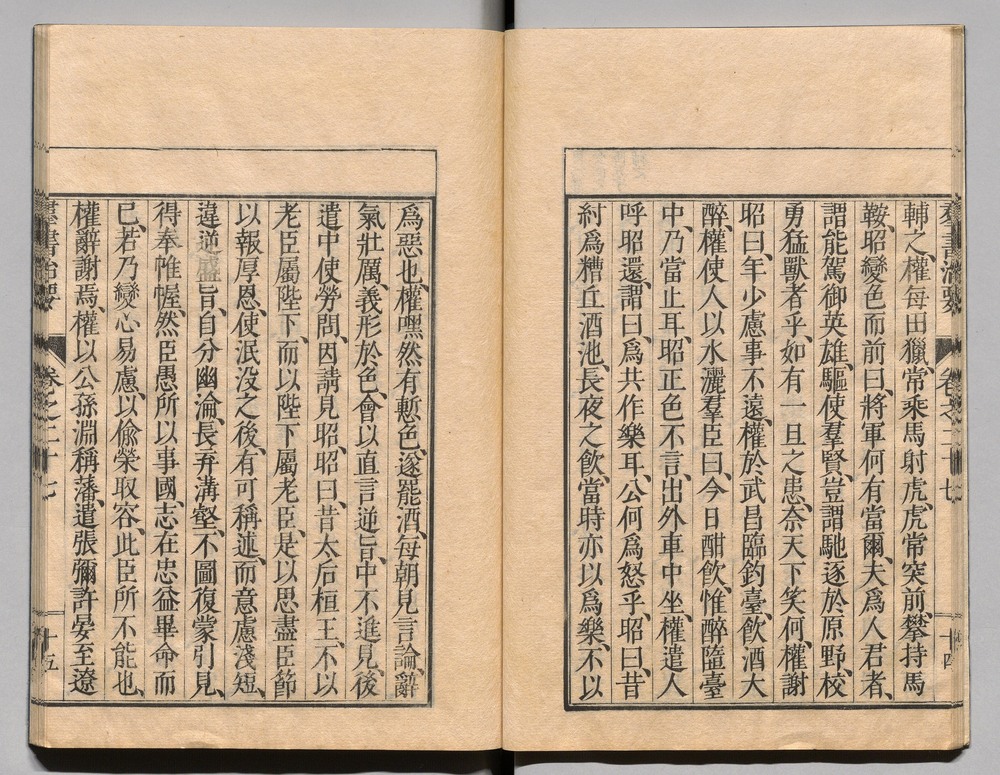 輔之、權每田獵、常乘馬射虎、虎常突前、攀持馬
鞍、昭變色而前曰、將軍何有當爾、夫爲人君者、
謂能駕御英雄、驅使羣賢、豈謂馳逐於原野、校
勇猛獸者乎、如有一旦之患、奈天下笑何、權謝
昭曰、年少慮事不遠、權於武昌臨釣臺、飲酒大
醉、權使人以水灑羣臣曰、今日酣飲、惟醉墮臺
中、乃當止耳、昭正色不言、出外車中坐、權遣人
呼昭還、謂曰、爲共作樂耳、公何爲怒乎、昭曰、昔
紂爲糟丘酒池、長夜之飲、當時亦以爲樂、不以
爲惡也、權嘿然有慙色、遂罷酒、每朝見言論、辭
氣壯厲、義形於色、會以直言逆旨、中不進見、後
遣中使勞問、因請見昭、昭曰、昔太后桓王、不以
老臣屬陛下、而以陛下屬老臣、是以思盡臣節
以報厚恩、使泯沒之後、有可稱述、而意慮淺短、
違逆盛旨、自分幽淪、長弃溝壑、不圖復蒙引見、
得奉帷幄、然臣愚所以事國、志在忠益畢命而
已、若乃變心易慮、以偷榮取容、此臣所不能也、
權辭謝焉、權以公孫淵稱藩、遣張彌許晏至遼
羣書治要 卷之二十七 十五